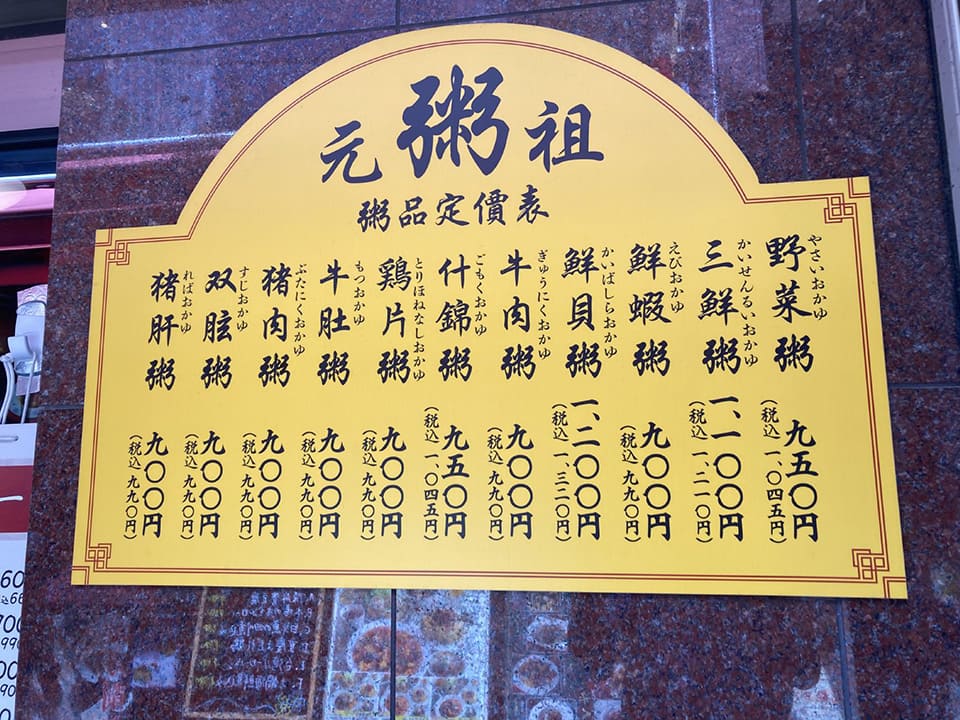 元粥祖
粥品定價表
やさいおかゆ
野菜粥
九五〇円
(税込 一、〇四五円)
かいせんるいおかゆ
三鮮粥
一、一〇〇円
(税込 一、二一〇円)
えびおかゆ
鮮蝦粥
九〇〇円
(税込 九九〇円)
かいばしらおかゆ
鮮貝粥
一、二〇〇円
(税込 一、三二〇円)
ぎゅうにくおかゆ
牛肉粥
九〇〇円
(税込 九九〇円)
ごもくおかゆ
什錦粥
九五〇円
(税込 一、〇四五円)
とりほねなしおかゆ
鶏片粥
九〇〇円
(税込 九九〇円)
もつおかゆ
牛肚粥
九〇〇円
(税込 九九〇円)
ぶたにくおかゆ
猪肉粥
九〇〇円
(税込 九九〇円)
すじおかゆ
双胘粥
九〇〇円
(税込 九九〇円)
ればおかゆ
猪肝粥
九〇〇円
(税込 九九〇円)